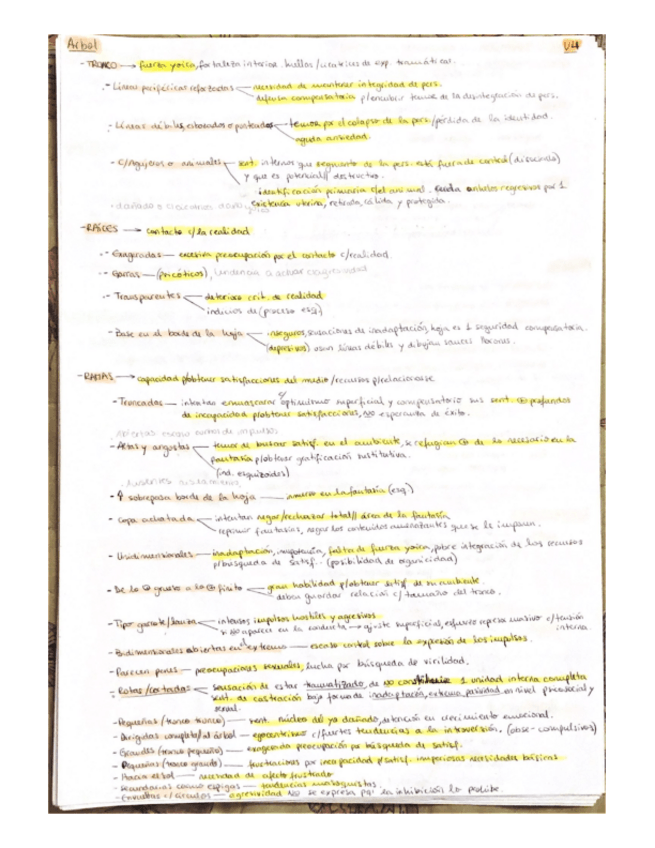 Arbol
- TRONCO → fuerza yoica, fortaleza interior. huellas/cicatrices de exp. traumáticas.
- Líneas periféricas reforzadas — necesidad de mantener integridad de pers.
defensa compensatoria p/encubrir temor de la desintegración de pers.
- Líneas débiles, esbozadas o punteadas — temor por el colapso de la pers./pérdida de la identidad.
aguda ansiedad.
- C/Agujeros o animales — sent. internos que segmento de la pers. está fuera de control (disociado)
y que es potencial// destructivo.
identificación primaria c/el animal. anhelos regresivos por 1
existencia uterina, retirada, cálida y protegida.
- RAÍCES → contacto c/la realidad
- Exageradas — excesiva preocupación por el contacto c/realidad.
- Garras — (psicóticos), tendencia a actuar
- Transparentes — deterioro crit. de realidad
indicios de (proceso esq)
- Base en el borde de la hoja — inseguros, sensaciones de inadaptación, hoja es 1 seguridad compensatoria.
(depresivos) usan líneas débiles y dibujan sauces llorones.
- RAMAS → capacidad p/obtener satisfacciones del medio/recursos p/relacionarse
- Truncadas — intentan enmascarar c/ optimismo superficial y compensatorio sus sent. profundos
de incapacidad p/obtener satisfacciones, NO esperanza de éxito.
- Altas y angostas — temor de buscar satisf. en el ambiente, se refugian de lo necesario en la
fantasía p/obtener gratificación sustitutiva.
(ind. esquizoides)
- ↑ sobrepasa borde de la hoja — inmerso en la fantasía (esq)
- Copa achatada — intentan negar/rechazar total// área de la fantasía
reprimir fantasías, negar los contenidos amenazantes que se le imponen.
- Unidimensionales — inadaptación, impotencia, falta de fuerza yoica, pobre integración de los recursos
p/búsqueda de satisf. (posibilidad de organicidad)
- De lo grueso a lo finito — gran habilidad p/obtener satisf de su ambiente.
deben guardar relación c/tamaño del tronco.
- Tipo garrote/ — intensos impulsos hostiles y agresivos
si NO aparece en la conducta → ajuste superficial, esfuerzo represivo masivo c/tensión
interna.
- Bidimensionales abiertas en extremo — escaso control sobre la expresión de los impulsos.
- Parecen penes — preocupaciones sexuales, lucha por búsqueda de virilidad.
- Rotas/cortadas — sensación de estar traumatizado, de NO constituir 1 unidad interna completa
sent. de castración bajo forma de inadaptación, extrema pasividad en nivel psicosocial y
sexual.
- Pequeñas/ — sent. núcleo del yo dañado, detención en crecimiento emocional.
- Dirigidas complet// al árbol — egocentrismo c/fuertes tendencias a la introversión. (obse-compulsivos)
- Grandes (tronco pequeño) — exagerada preocupación por búsqueda de satisf.
- Pequeñas (tronco grande) — frustraciones por incapacidad p/satisf. imperiosas necesidades básicas
- Hacia el sol — necesidad de afecto frustrado
- Secundarias como espigas — tendencias masoquistas.
- c/círculos — agresividad NO se expresa pq. la inhibición lo prohíbe